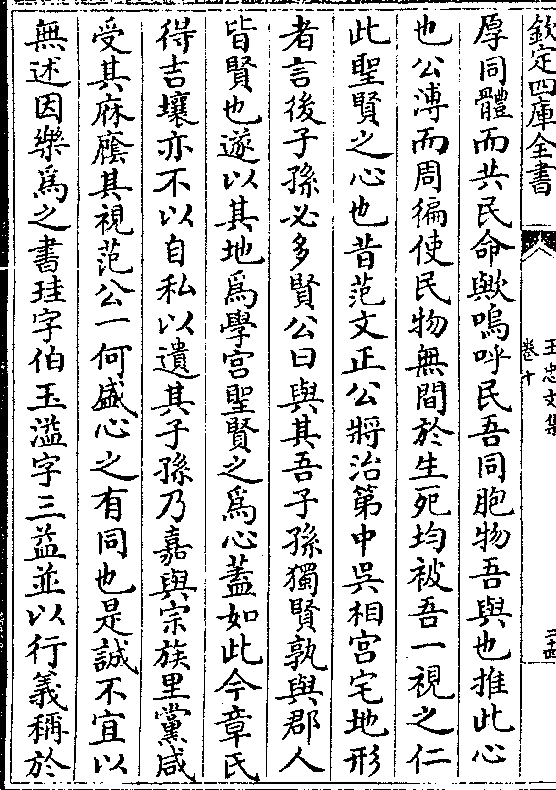 欽定四庫全書
王忠文集
卷十
二十四
厚同體而共民命歟嗚呼民吾同胞物吾與也推此心
也公溥而周徧使民物無間於生死均被吾一視之仁
此聖賢之心也昔范文正公將治第中吳相宫宅地形
者言後子孫必多賢公曰與其吾子孫獨賢孰與郡人
皆賢也遂以其地爲學宫聖賢之爲心蓋如此今章氏
得吉壤亦不以自私以遺其子孫乃嘉與宗族里黨咸
受其庥廕其視范公一何盛心之有同也是誠不宜以
無述因樂爲之書珪字伯玉溢字三益並以行義稱於